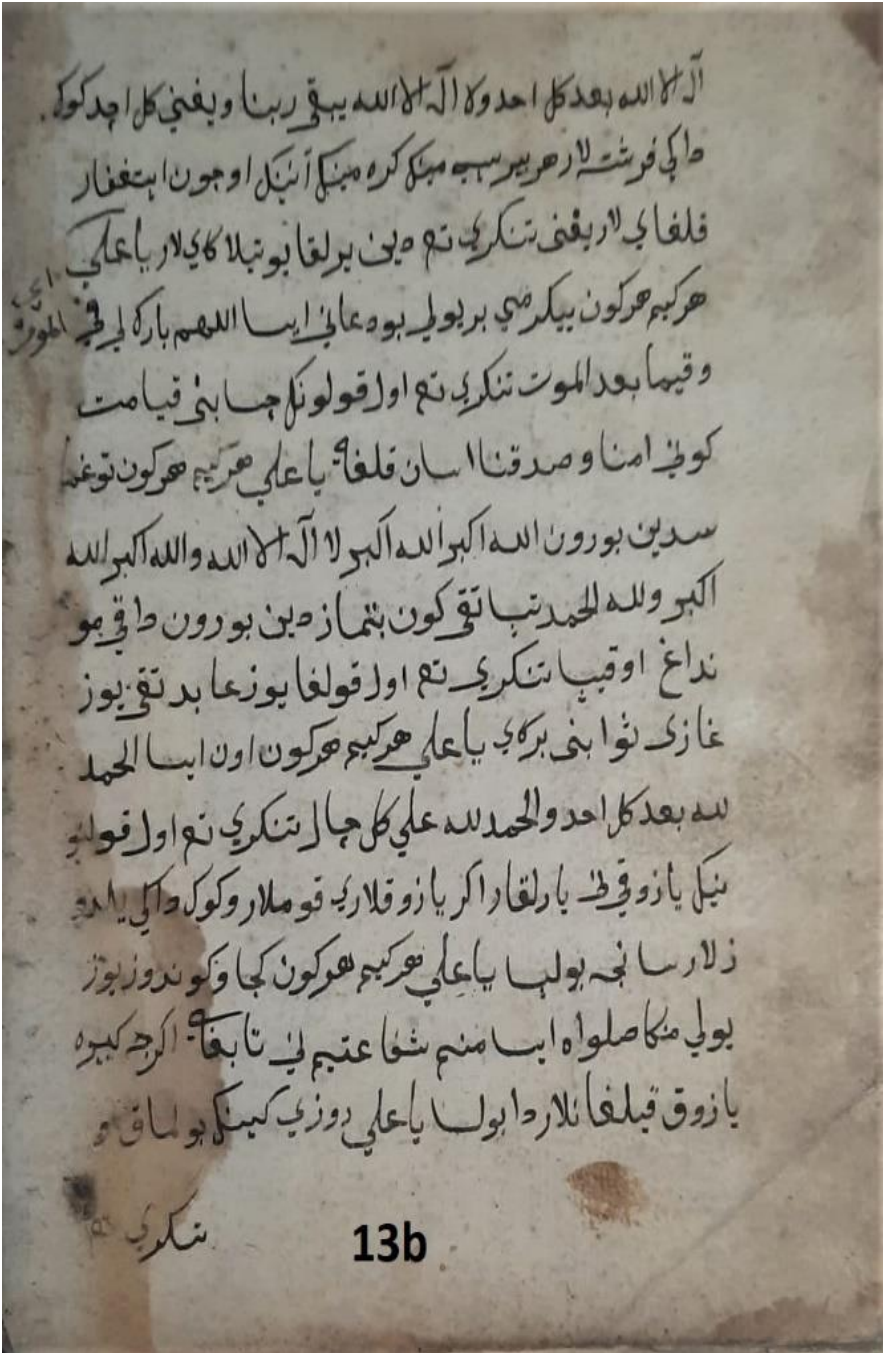 اله الا الله بعد كل احد ولا اله الا الله يبقى ربنا ويفني كل احد كوك
داكي فرشته لار هر بير سي مينك كره مينك آنينك اوجون استغفار
قلغاي لار يعنى تنكري تع دين يرلقا يو تيلا كاي لار يا علي
هر كيم هر كون ييكرمي بر يولي بو دعاني ايسا اللهم بارك لي في الموت
وفيما بعد الموت تنكري تع اول قولونك حسابنى قيامت
كوني امنا وصدقنا اسان قلغاي يا علي هر كيم هر كون توغما
سدين بورون الله اكبر الله اكبر لا اله الا الله والله اكبر الله
اكبر ولله الحمد تيسا تقى كون بتماز دين بورون داقي مو
نداغ اوقيسا تنكري تع اول قولغا يوز عابد تقى يوز
غازى ثوابنى بركاي يا علي هر كيم هر كون اون ايسا الحمد
لله بعد كل احد والحمد لله علي كل حال تنكري تع اول قولنو
نينك يازوقني يارلقار اكر يازوقلاري قوملار وكوك داكي يلدو
زلار سانجه بولسا يا علي هر كيم هر كون كجا وكوندوز يوز
يولي منكا صلواة ايسا منيم شفاعتيم ني تابغاي اكرچه كبيره
يازوق قيلغانلار دا بولسا يا علي روزي كينك بولماق و
تنكري تع
13b